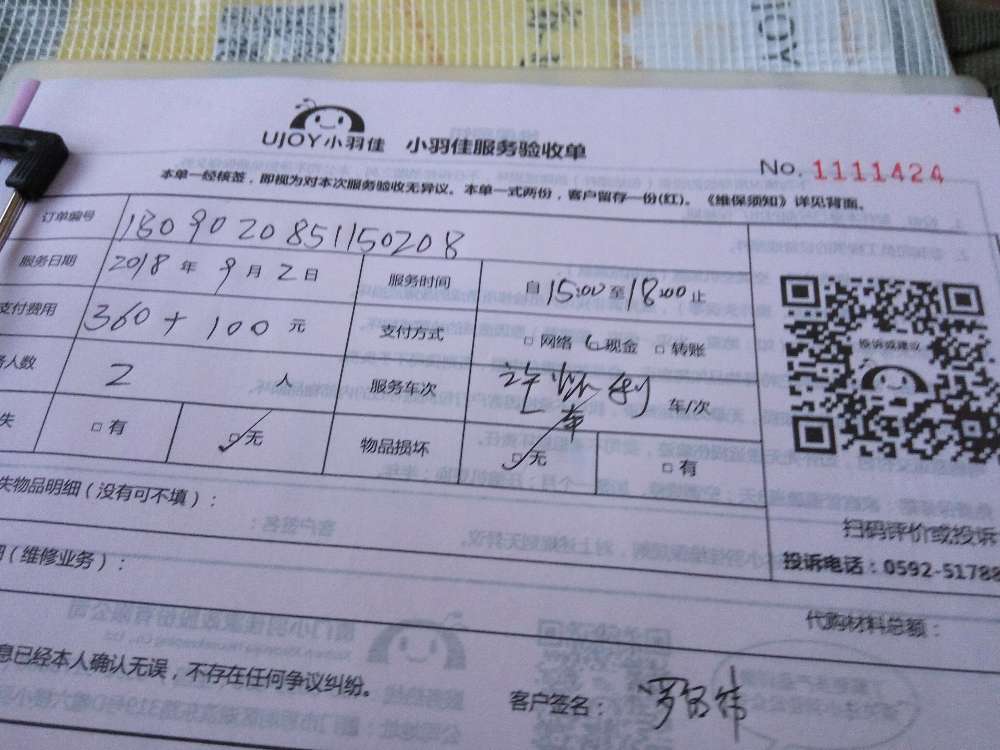 UJOY小羽佳 小羽佳服务验收单
No. 1111424
本单一经核签，即视为对本次服务验收无异议。本单一式两份，客户留存一份(红)。《维保须知》详见背面。
订单编号 1809020851150208
服务日期 2018 年 9 月 2 日 服务时间 自 15:00 至 18:00 止
支付费用 360 + 100 元 支付方式 □ 网络 □ 现金 □ 转账
务人数 2 人 服务车次 车/次
失 □ 有 □ 无 物品损坏 □ 无 □ 有
失物品明细（没有可不填）：
投诉或建议
扫码评价或投诉
投诉电话：0592-51788
（维修业务）：
代购材料总额：
息已经本人确认无误，不存在任何争议纠纷。
客户签名：